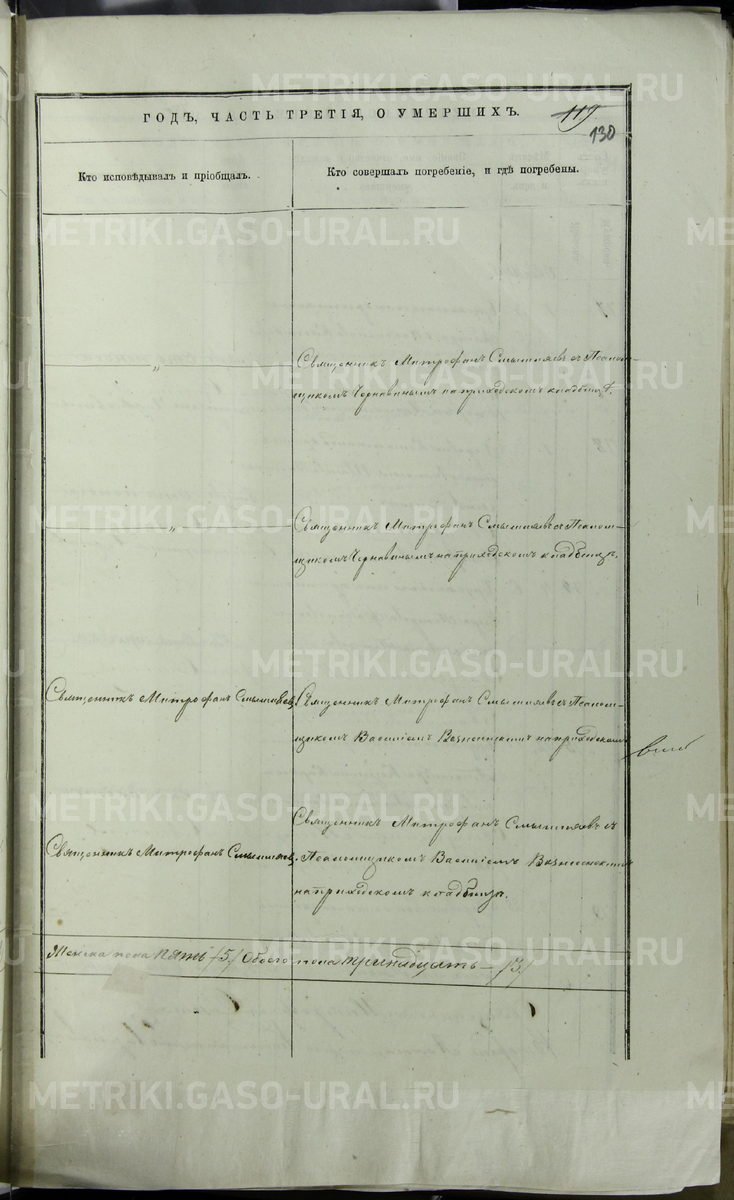 ГОДЪ, ЧАСТЬ ТРЕТІЯ, О УМЕРШИХЪ.
119
130
Кто исповѣдывалъ и пріобщалъ.
Кто совершалъ погребеніе, и гдѣ погребены.
„
Священникъ Митрофанъ Смышляевъ съ Псалом-
щикомъ Чернавинымъ на приходскомъ кладбищѣ.
„
Священникъ Митрофанъ Смышляевъ съ Псалом-
щикомъ Чернавинымъ на приходскомъ кладбищѣ.
Священникъ Митрофанъ Смышляевъ.
Священникъ Митрофанъ Смышляевъ съ Псалом-
щикомъ Василіемъ Вознесенскимъ на приходскомъ
Священникъ Митрофанъ Смышляевъ.
Священникъ Митрофанъ Смышляевъ съ
Псаломщикомъ Василіемъ Вознесенскимъ
на приходскомъ кладбищѣ.
Женска пола пять /5/ Обоего пола тринадцать —
METRIKI.GASO-URAL.RU